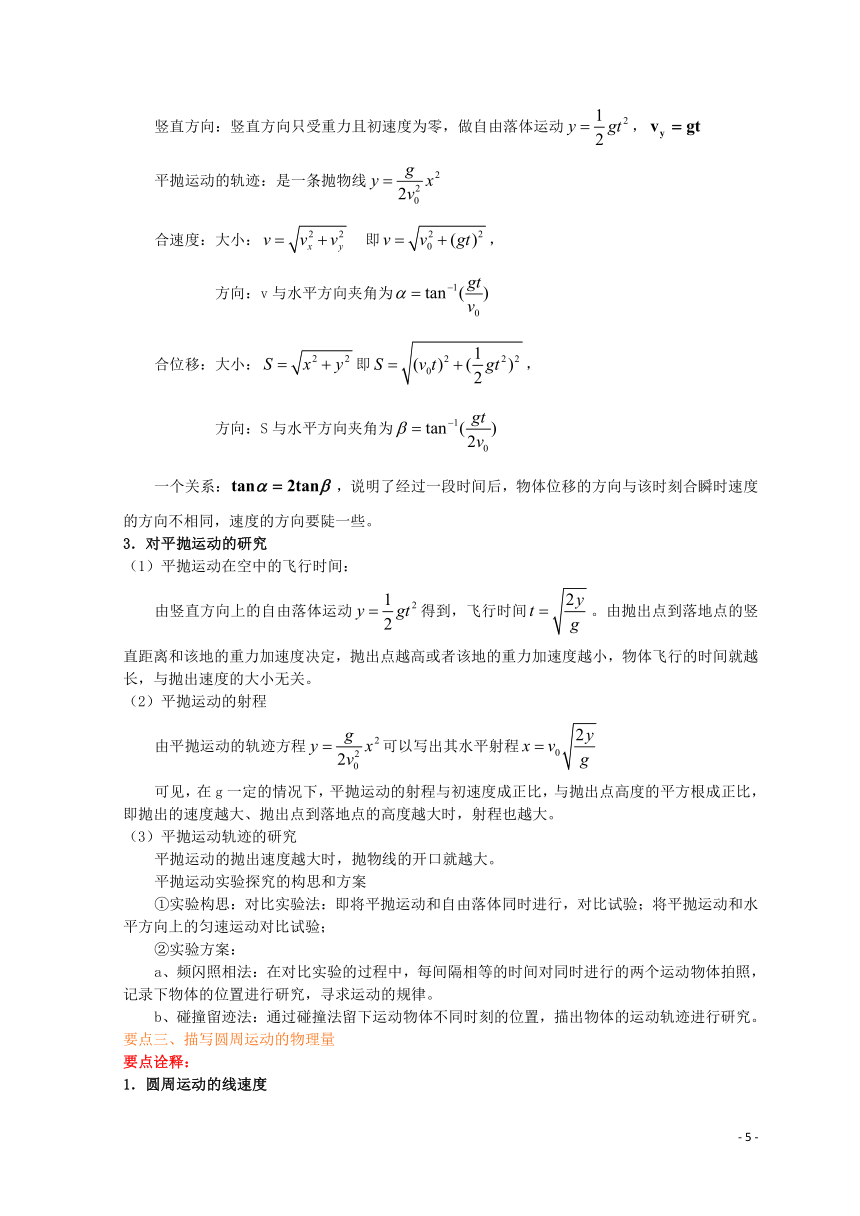 竖直方向：竖直方向只受重力且初速度为零，做自由落体运动 y = \frac{1}{2}gt^2，v_y = gt
平抛运动的轨迹：是一条抛物线 y = \frac{g}{2v_0^2}x^2
合速度：大小：v = \sqrt{v_x^2 + v_y^2} 即 v = \sqrt{v_0^2 + (gt)^2}，
方向：v 与水平方向夹角为 α = tan^{-1}(\frac{gt}{v_0})
合位移：大小：S = \sqrt{x^2 + y^2} 即 S = \sqrt{(v_0t)^2 + (\frac{1}{2}gt^2)^2}，
方向：S 与水平方向夹角为 β = tan^{-1}(\frac{gt}{2v_0})
一个关系：tanα = 2tanβ，说明了经过一段时间后，物体位移的方向与该时刻合瞬时速度
的方向不相同，速度的方向要陡一些。
3．对平抛运动的研究
（1）平抛运动在空中的飞行时间：
由竖直方向上的自由落体运动 y = \frac{1}{2}gt^2 得到，飞行时间 t = \sqrt{\frac{2y}{g}}。由抛出点到落地点的竖
直距离和该地的重力加速度决定，抛出点越高或者该地的重力加速度越小，物体飞行的时间就越
长，与抛出速度的大小无关。
（2）平抛运动的射程
由平抛运动的轨迹方程 y = \frac{g}{2v_0^2}x^2 可以写出其水平射程 x = v_0\sqrt{\frac{2y}{g}}
可见，在 g 一定的情况下，平抛运动的射程与初速度成正比，与抛出点高度的平方根成正比，
即抛出的速度越大、抛出点到落地点的高度越大时，射程也越大。
（3）平抛运动轨迹的研究
平抛运动的抛出速度越大时，抛物线的开口就越大。
平抛运动实验探究的构思和方案
①实验构思：对比实验法：即将平抛运动和自由落体同时进行，对比试验；将平抛运动和水
平方向上的匀速运动对比试验；
②实验方案：
a、频闪照相法：在对比实验的过程中，每间隔相等的时间对同时进行的两个运动物体拍照，
记录下物体的位置进行研究，寻求运动的规律。
b、碰撞留迹法：通过碰撞法留下运动物体不同时刻的位置，描出物体的运动轨迹进行研究。
要点三、描写圆周运动的物理量
要点诠释：
1．圆周运动的线速度
- 5 -